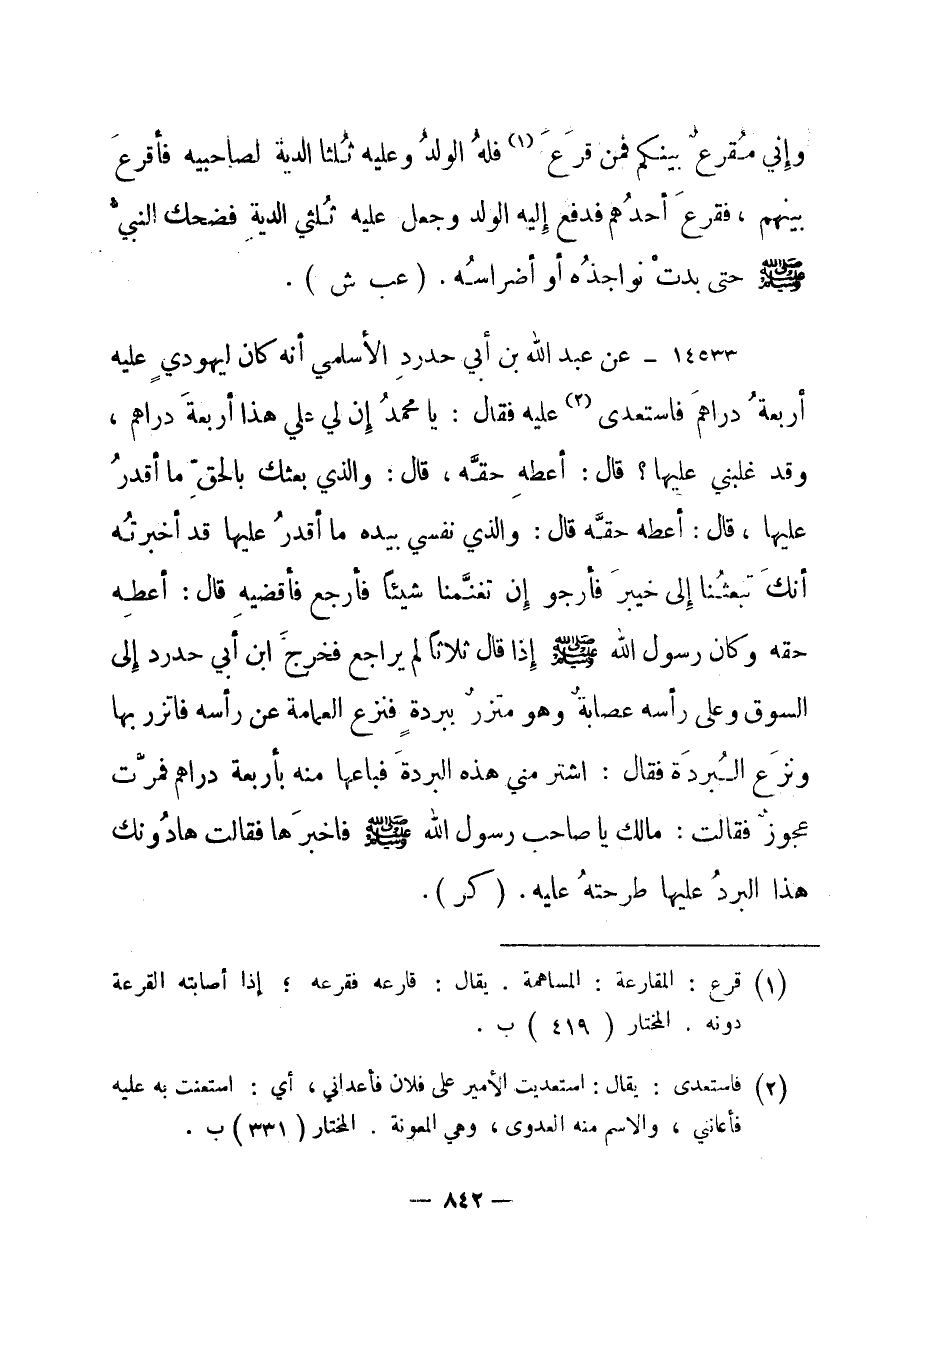 وإني مُقرعٌ بينكم فمن قرَعَ (١) فلهُ الولدُ وعليه ثُلثا الدية لصاحبيه فأقرعَ
بينهم ، فقرعَ أحدُهم فدفع إليه الولد وجعل عليه ثُلثي الديةِ فضحك النبيُّ
ﷺ حتى بدتْ نواجذُه أو أضراسُه . ( عب ش ) .
١٤٥٣٣ ــ عن عبد الله بن أبي حدردِ الأسلمي أنه كان ليهوديٍ عليه
أربعةُ دراهمَ فاستعدى (٢) عليه فقال : يا محمدُ إن لي علي هذا أربعةَ دراهم ،
وقد غلبني عليها ؟ قال : أعطهِ حقَّه ، قال : والذي بعثك بالحقِّ ما أقدرُ
عليها ، قال : أعطه حقَّه قال : والذي نفسي بيده ما أقدرُ عليها قد أخبرتُه
أنكَ تبعثُنا إلى خيبرَ فأرجو إن تغنَّمنا شيئاً فأرجع فأقضيهِ قال : أعطهِ
حقه وكان رسول الله ﷺ إذا قال ثلاثاً لم يراجع فخرجَ ابن أبي حدرد إلى
السوق وعلى رأسه عصابةٌ وهو متزرٌ ببردةٍ فنزع العمامة عن رأسه فاتزر بها
ونزَع البُردَة فقال : اشتر مني هذه البردةَ فباعها منه بأربعة دراهم فمرَّت
عجوزٌ فقالت : مالك يا صاحب رسول الله ﷺ فاخبرَها فقالت هادُونك
هذا البردُ عليها طرحتهُ عليه . ( كر ) .
(١) قرع : المقارعة : المساهمة . يقال : قارعه فقرعه ؛ إذا أصابته القرعة
دونه . المختار ( ٤١٩ ) ب .
(٢) فاستعدى : يقال : استعديت الأمير على فلان فأعداني ، أي : استعنت به عليه
فأعانني ، والاسم منه العدوى ، وهي المعونة . المختار ( ٣٣١ ) ب .
— ٨٤٢ —